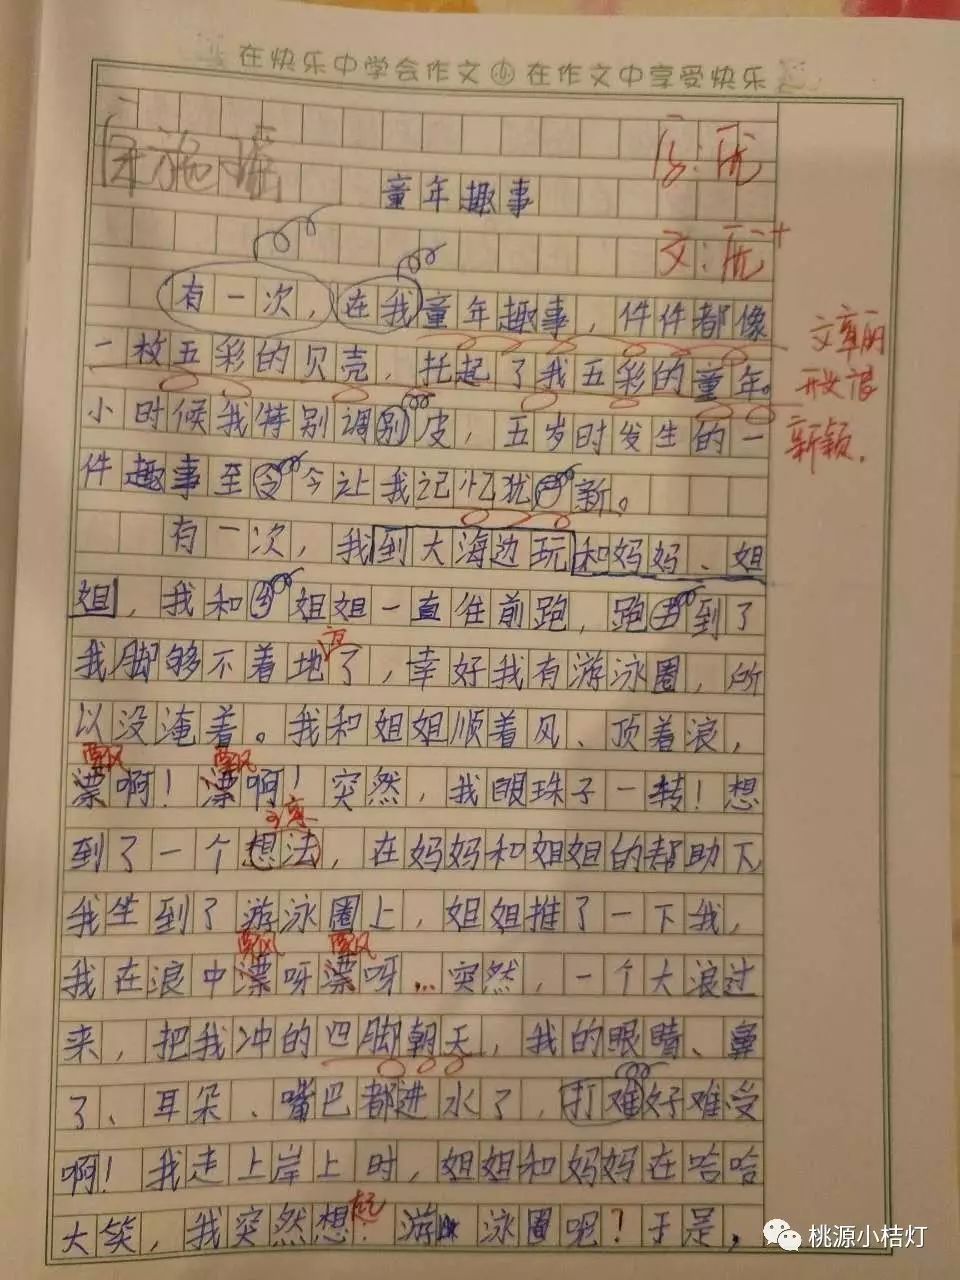 在快乐中学会作文 在作文中享受快乐
书:优
童年趣事
文:优+
有一次,在我童年趣事,件件都像
一枚五彩的贝壳,托起了我五彩的童年。
文章的
开头很
新颖.
小时候我特别调别皮,五岁时发生的一
件趣事至令今让我记忆犹 新。
有一次,我到大海边玩和妈妈、姐
姐,我和 姐姐一直往前跑,跑 到了
我脚够不着地了,幸好我有游泳圈,所
以没淹着。我和姐姐顺着风、顶着浪,
飘 飘
漂啊!漂啊!突然,我眼珠子一转!想
到了一个想法,在妈妈和姐姐的帮助下
我坐到了游泳圈上,姐姐推了一下我,
飘 飘
我在浪中漂呀漂呀…突然,一个大浪过
来,把我冲的四脚朝天,我的眼睛、鼻
了、耳朵、嘴巴都进水了,打难好难受
啊!我走上岸上时,姐姐和妈妈在哈哈
起
大笑,我突然想 游 泳圈呢?于是,
桃源小桔灯